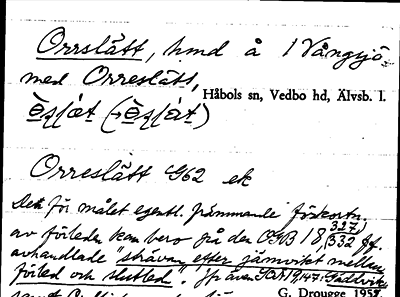 Orrslätt, hmd å 1 Vångsjö
med Orreslätt,
Håbols sn, Vedbo hd, Älvsb. l.
Orreslätt G62 ek
Det för målet egentl. främmande förkortn.
av förleden kan bero på den OGB 18, 327, 332 ff.
avhandlade "strävan efter jämvikt mellan
förled och slutled". Jfr även
G. Drougge 1957.